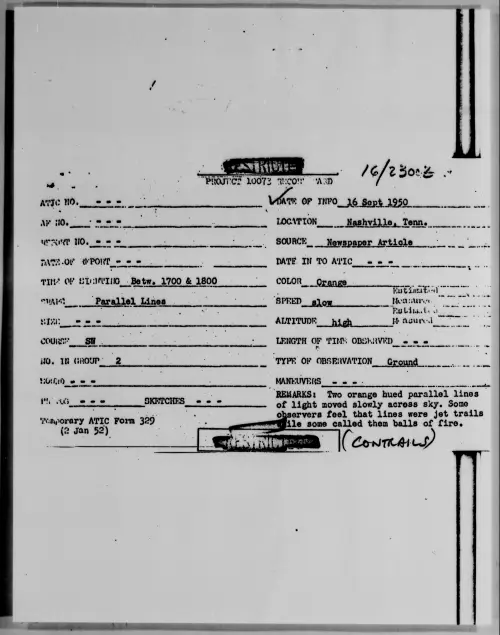 RESTRICTED
16/2300Z
PROJECT 10073 RECORD CARD
ATIC NO. - - -
DATE OF INFO 16 Sept 1950
AF NO. - - -
LOCATION Nashville, Tenn.
REPORT NO. - - -
SOURCE Newspaper Article
DATE OF REPORT - - -
DATE IN TO ATIC - - -
TIME OF SIGHTING Betw. 1700 & 1800
COLOR Orange
SHAPE Parallel Lines
SPEED slow Estimated Measured
SIZE - - -
ALTITUDE high Estimated Measured
COURSE SW
LENGTH OF TIME OBSERVED - - -
NO. IN GROUP 2
TYPE OF OBSERVATION Ground
SOUND - - -
MANEUVERS - - -
PHOTOS - - - SKETCHES - - -
REMARKS: Two orange hued parallel lines
of light moved slowly acress sky. Some
observers feel that lines were jet trails
while some called them balls of fire.
Temporary ATIC Form 329
(2 Jan 52)
RESTRICTED
(CONTRAILS)